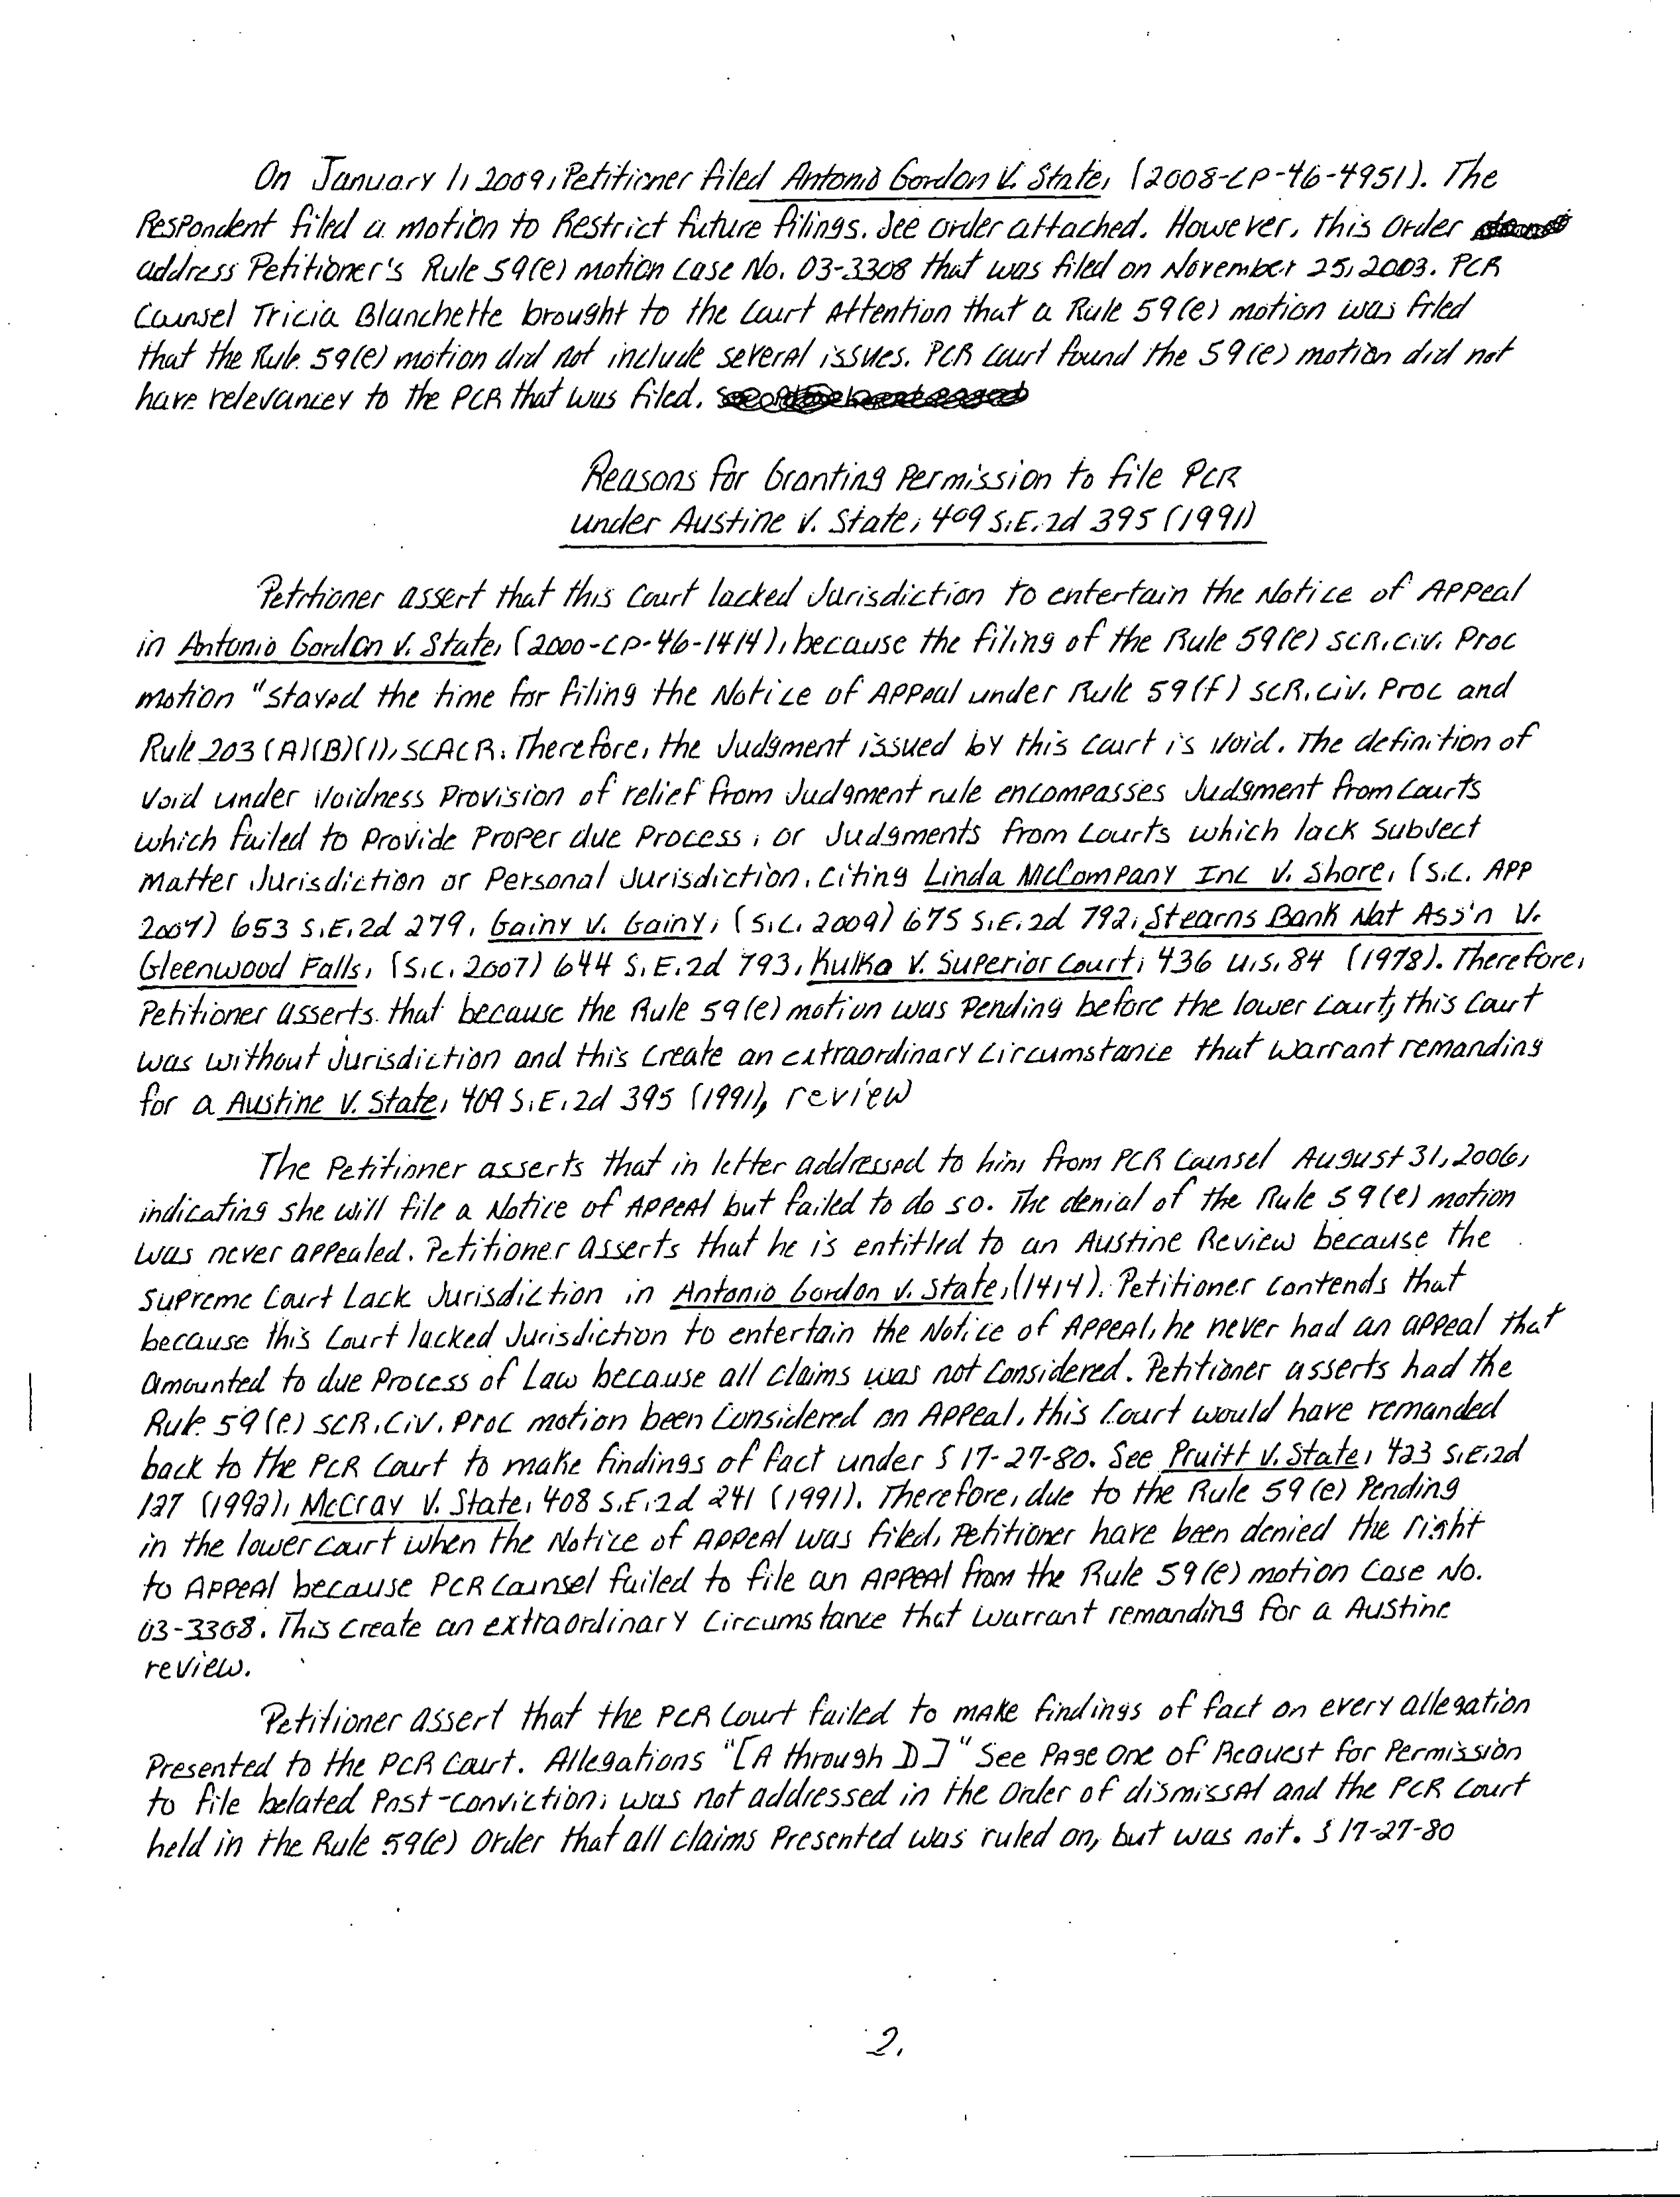 On January 1, 2009, Petitioner filed Antonio Gordon V. State, (2008-CP-46-4951). The
Respondent filed a motion to Restrict future filings. See order attached. However, this Order
address Petitioner's Rule 59(e) motion Case No. 03-3308 that was filed on November 25, 2003. PCR
Counsel Tricia Blanchette brought to the Court Attention that a Rule 59(e) motion was filed
that the Rule 59(e) motion did not include several issues. PCR Court found the 59(e) motion did not
have relevancey to the PCR that was filed.
Reasons for Granting Permission to file PCR
under Austine V. State, 409 S.E.2d 395 (1991)
Petitioner assert that this Court lacked Jurisdiction to entertain the Notice of Appeal
in Antonio Gordon V. State, (2000-CP-46-1414), because the filing of the Rule 59(e) SCR.Civ. Proc
motion "stayed the time for filing the Notice of Appeal under Rule 59(f) SCR.Civ. Proc and
Rule 203 (A)(B)(1), SCACR. Therefore, the Judgment issued by this Court is Void. The definition of
Void under Voidness Provision of relief from Judgment rule encompasses Judgment from Courts
which failed to Provide Proper due Process, or Judgments from Courts which lack Subject
Matter Jurisdiction or Personal Jurisdiction. Citing Linda McCompany Inc V. Shore, (S.C. App
2007) 653 S.E.2d 279, Gainy V. Gainy, (S.C. 2009) 675 S.E.2d 792, Stearns Bank Nat Ass'n V.
Gleenwood Falls, (S.C. 2007) 644 S.E.2d 793, Kulko V. Superior Court, 436 U.S. 84 (1978). Therefore,
Petitioner asserts that because the Rule 59(e) motion was Pending before the lower Court, this Court
was without Jurisdiction and this Create an extraordinary Circumstance that warrant remanding
for a Austine V. State, 409 S.E.2d 395 (1991), review
The Petitioner asserts that in letter addressed to him from PCR Counsel August 31, 2006,
indicating she will file a Notice of Appeal but failed to do so. The denial of the Rule 59(e) motion
was never appealed. Petitioner asserts that he is entitled to an Austine Review because the
Supreme Court Lack Jurisdiction in Antonio Gordon V. State, (1414). Petitioner Contends that
because this Court lacked Jurisdiction to entertain the Notice of Appeal, he never had an appeal that
amounted to due Process of Law because all claims was not Considered. Petitioner asserts had the
Rule 59(e) SCR.Civ. Proc motion been Considered on Appeal, this Court would have remanded
back to the PCR Court to make findings of fact under § 17-27-80. See Pruitt V. State, 423 S.E.2d
127 (1992), McCray V. State, 408 S.E.2d 241 (1991). Therefore, due to the Rule 59(e) Pending
in the lower Court when the Notice of Appeal was filed, Petitioner have been denied the right
to Appeal because PCR Counsel failed to file an Appeal from the Rule 59(e) motion Case No.
03-3308. This Create an extraordinary Circumstance that warrant remanding for a Austine
review.
Petitioner assert that the PCR Court failed to make findings of fact on every allegation
Presented to the PCR Court. Allegations "[A through D]" See Page One of Request for Permission
to file belated Post-Conviction; was not addressed in the Order of dismissal and the PCR Court
held in the Rule 59(e) Order that all claims Presented was ruled on, but was not. § 17-27-80
2.